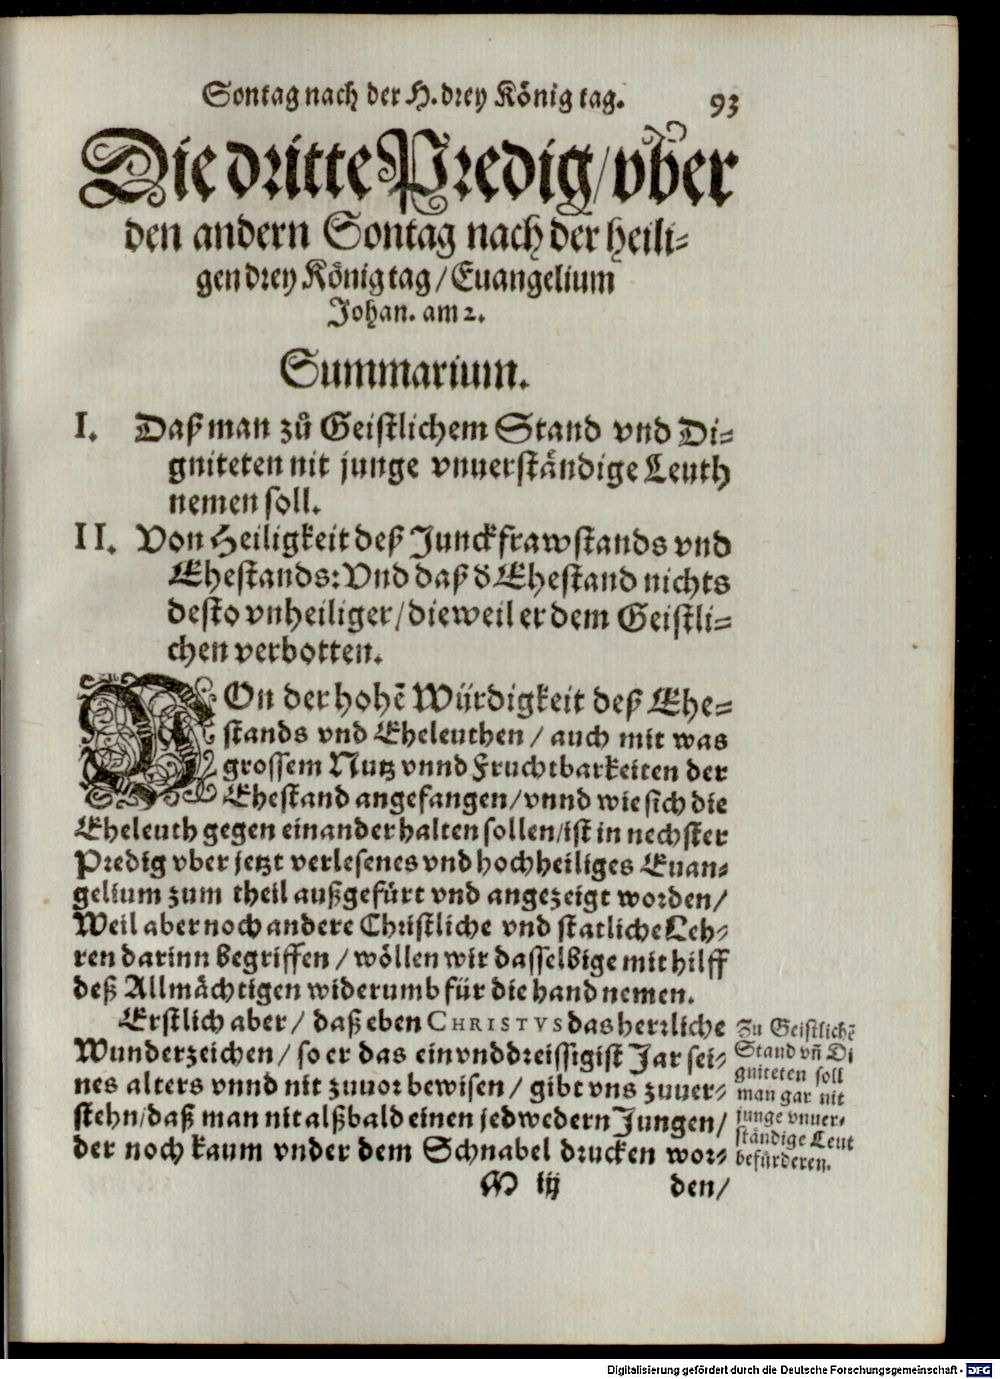 Sontag nach der H. drey König tag. 93
Die dritte Predig/ vber
den andern Sontag nach der heili⸗
gen drey König tag/ Euangelium
Johan. am 2.
Summarium.
I. Daß man zů Geistlichem Stand vnd Di⸗
gniteten nit junge vnuerständige Leuth
nemen soll.
II. Von Heiligkeit deß Junckfrawstands vnd
Ehestands: Vnd daß d Ehestand nichts
desto vnheiliger/ dieweil er dem Geistli⸗
chen verbotten.
VOn der hohē Würdigkeit deß Ehe⸗
stands vnd Eheleuthen / auch mit was
grossem Nutz vnnd Fruchtbarkeiten der
Ehestand angefangen/ vnnd wie sich die
Eheleuth gegen einander halten sollen/ ist in nechster
Predig vber jetzt verlesenes vnd hochheiliges Euan⸗
gelium zum theil außgefürt vnd angezeigt worden/
Weil aber noch andere Christliche vnd statliche Leh⸗
ren darinn begriffen / wöllen wir dasselbige mit hilff
deß Allmächtigen widerumb für die hand nemen.
Erstlich aber / daß eben CHRISTVS das herrliche
Wunderzeichen / so er das ein vnd dreissigist Jar sei⸗
nes alters vnnd nit zuuor bewisen / gibt vns zuuer⸗
stehn/ daß man nit alßbald einen jedwedern Jungen/
der noch kaum vnder dem Schnabel drucken wor⸗
Zu Geistlichē
Stand vn̄ Di
gniteten soll
man gar nit
junge vnuer⸗
ständige Leut
befürderen.
M iij den/
Digitalisierung gefördert durch die Deutsche Forschungsgemeinschaft - DFG